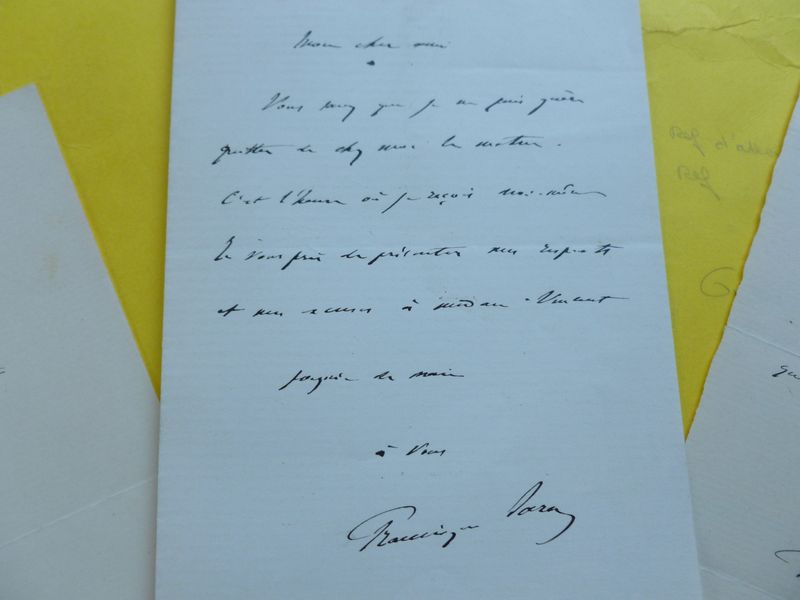 Mon cher ami
Vous savez que je ne puis guère
quitter de chez moi le matin.
C'est l'heure où je reçois moi-même
Je vous prie de présenter mes respects
et mes excuses à madame Vincent
poignée de main
à vous
Francisque Sarcey
Ref d'
Ref
G